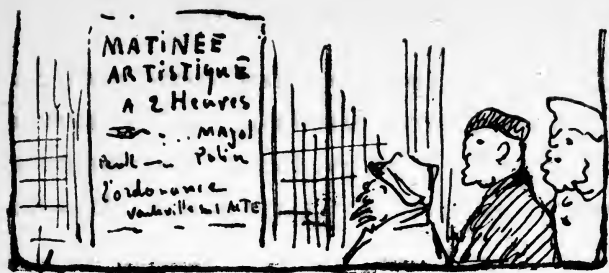 MATINÉE
ARTISTIQUE
A 2 Heures
Mayol
Polin
L'ordonnance
Vaudeville en 1 ACTE